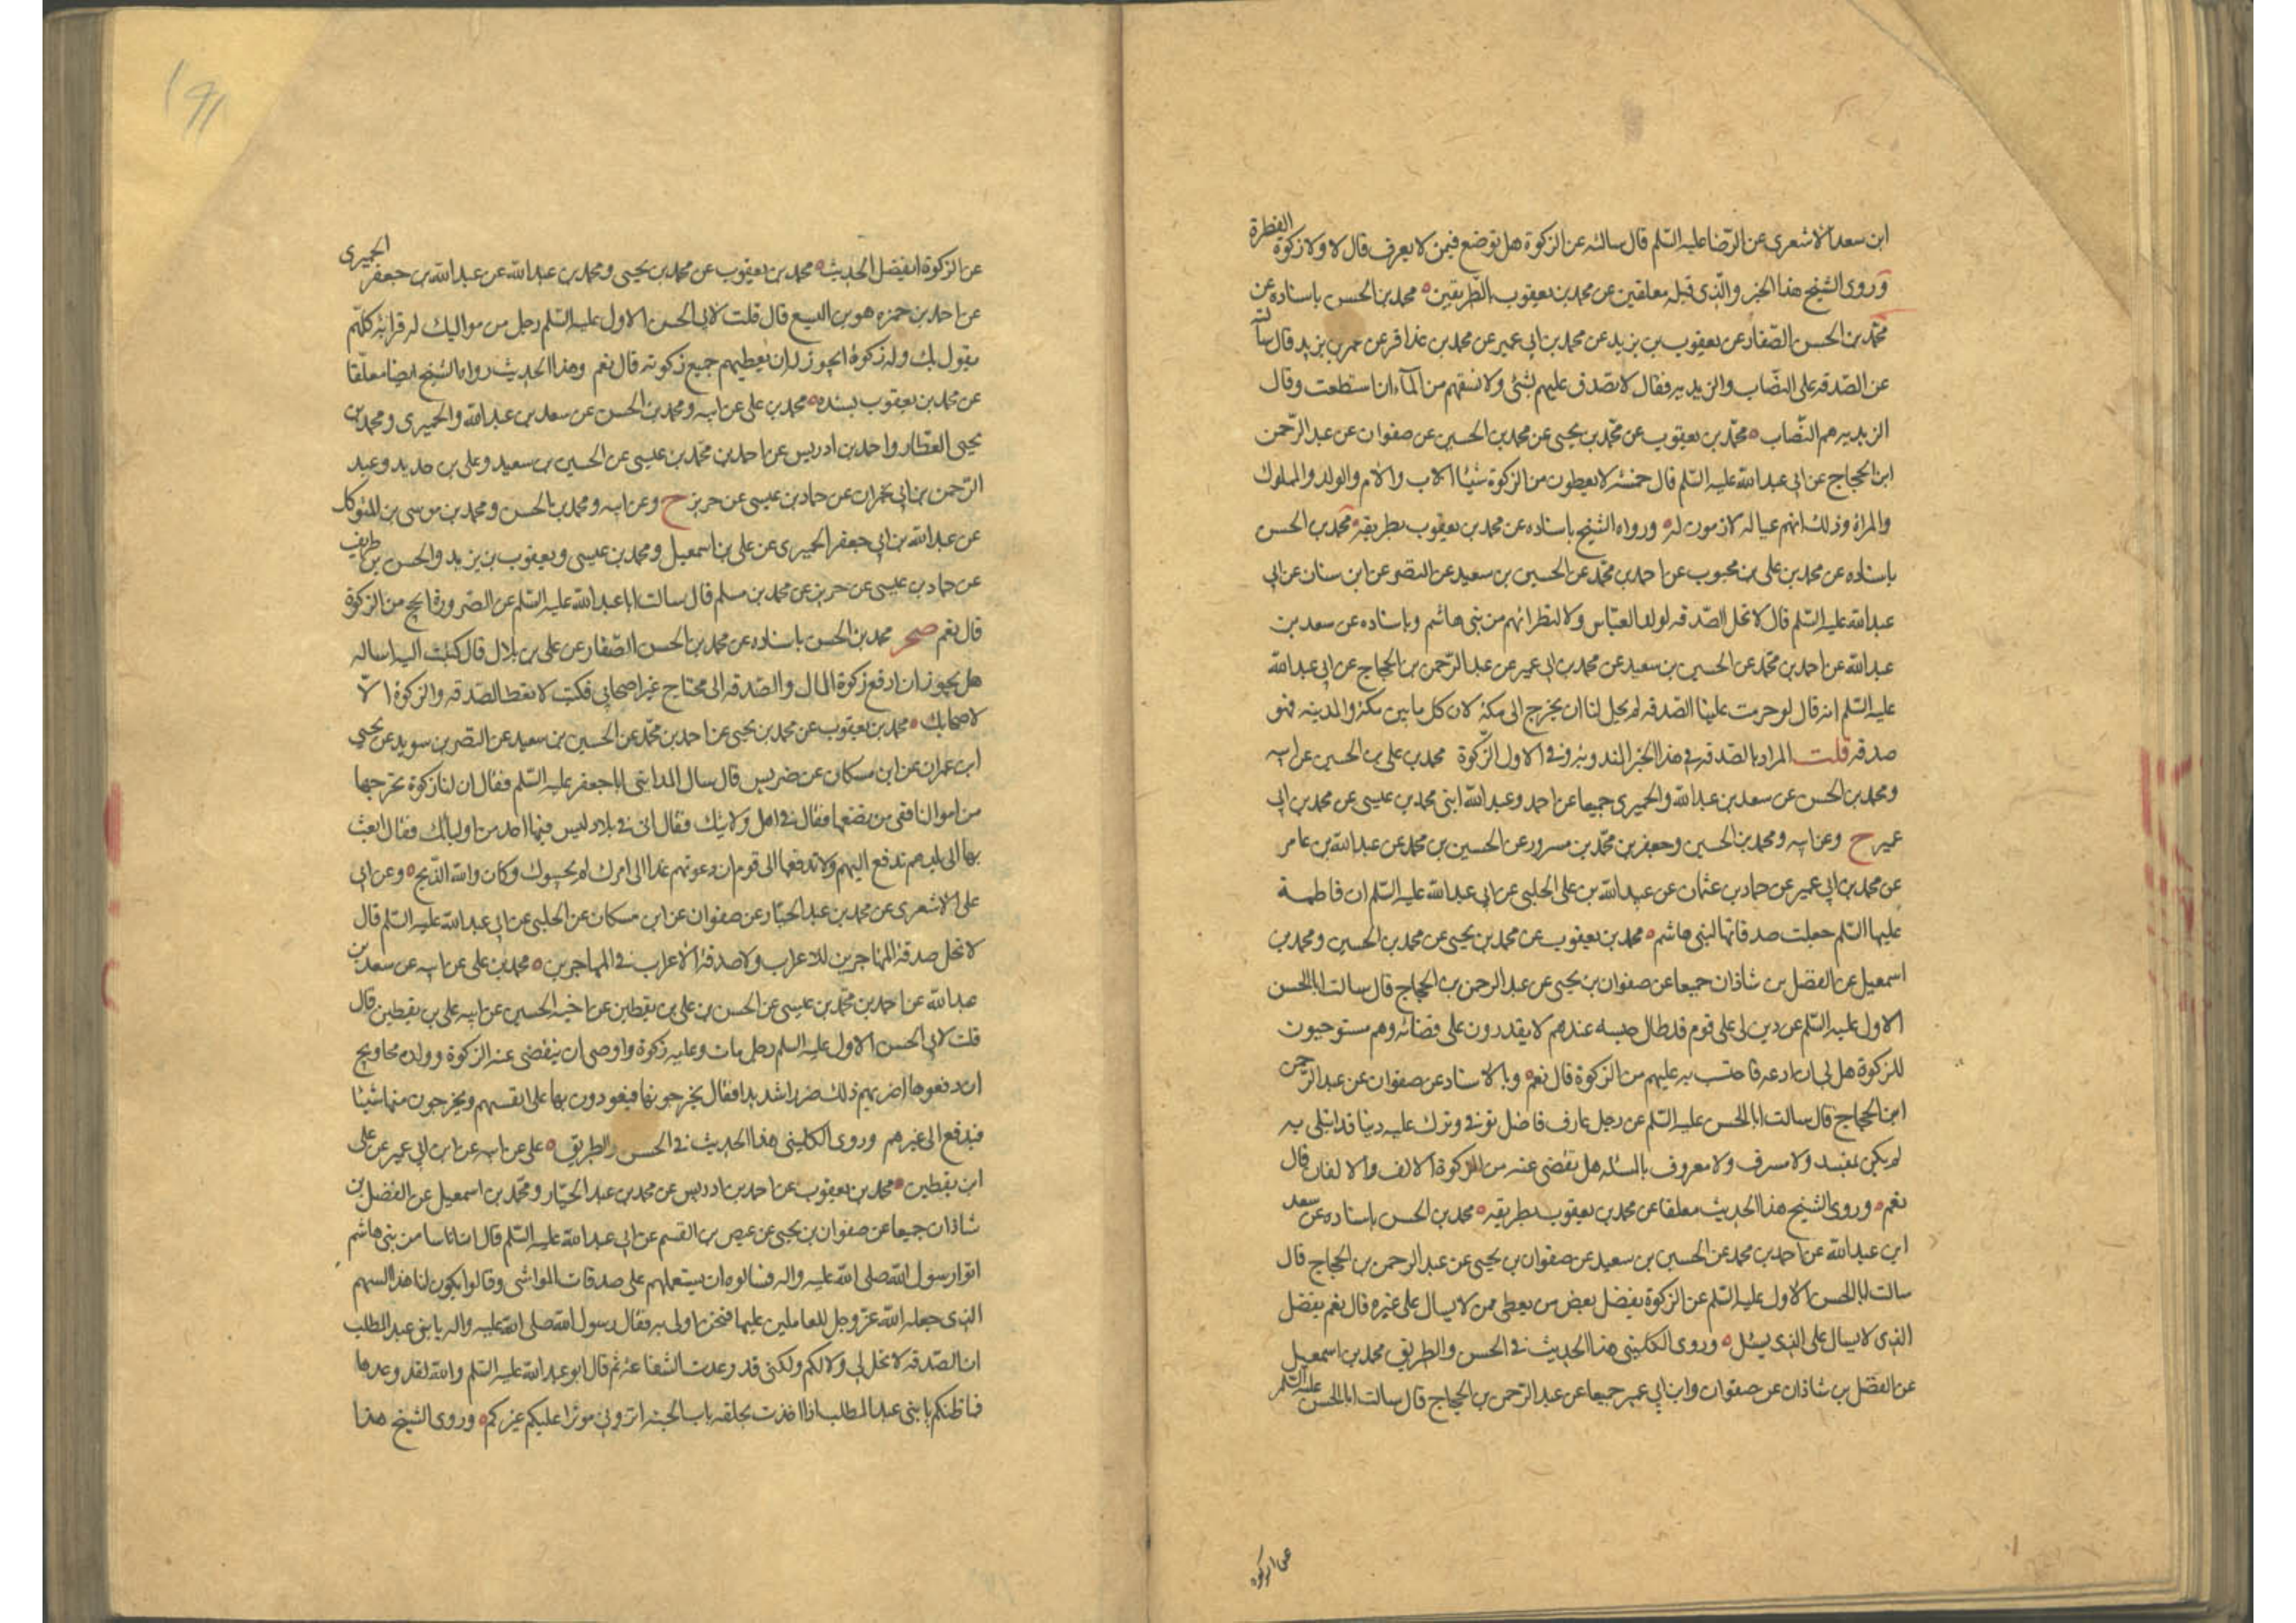 ابن سعد الاشعرى عن الرّضا عليه السّلم قال سالته عن الزكوة هل توضع فيمن لا يعرف قال لا ولا زكوة الفطرة
وروى الشيخ هذا الخبر والّذى قبله معلقين عن محمد بن يعقوب بالطّريقين ه محمد بن الحسن باسناده عن
محمّد بن الحسن الصّفار عن يعقوب بن يزيد عن محمد بن ابى عمير عن محمد بن عذافر عن عمر بن يزيد قال سالته
عن الصّدقه على النصّاب والزيديه فقال لا تصدق عليهم بشئ ولا تسقهم من المآء ان استطعت وقال
الزيديه هم النصّاب ه محمّد بن يعقوب عن محمّد بن يحيى عن محمد بن الحسين عن صفوان عن عبد الرّحمن
ابن الحجاج عن ابى عبد الله عليه السّلم قال خمسة لا يعطون من الزكوة شيئا الاب والام والولد والمملوك
والمراة وذلك انهم عياله لازمون له ه ورواه الشيخ باسناده عن محمد بن يعقوب بطريقه ه محمد بن الحسن
باسناده عن محمد بن على بن محبوب عن احمد بن محمّد عن الحسين بن سعيد عن النضر عن ابن سنان عن ابى
عبد الله عليه السّلم قال لا تحل الصّدقه لولد العبّاس ولا لنظرائهم من بنى هاشم وباسناده عن سعد بن
عبد الله عن احمد بن محمّد عن الحسين بن سعيد عن محمد بن ابى عمير عن عبد الرّحمن بن الحجاج عن ابى عبد الله
عليه السّلم انه قال لو حرمت علينا الصدقه لم يحل لنا ان نخرج الى مكة لان كل ما بين مكة والمدينه فهو
صدقه قلت المراد بالصّدقه فى هذا الخبر المندوبة وفى الاول الزّكوة محمد بن على بن الحسين عن ابيه
ومحمد بن الحسن عن سعد بن عبد الله والحميرى جميعا عن احمد وعبد الله ابنى محمد بن عيسى عن محمد بن ابى
عمير ح وعن ابيه ومحمد بن الحسين وجعفر بن محمّد بن مسرور عن الحسين بن محمد عن عبد الله بن عامر
عن محمد بن ابى عمير عن حماد بن عثمان عن عبيد الله بن على الحلبى عن ابى عبد الله عليه السّلم ان فاطمة
عليها السّلم جعلت صدقاتها لبنى هاشم ه محمد بن يعقوب عن محمد بن يحيى عن محمد بن الحسين ومحمد بن
اسمعيل عن الفضل بن شاذان جميعا عن صفوان بن يحيى عن عبد الرحمن بن الحجاج قال سالت ابا الحسن
الاول عليه السّلم عن دين لى على قوم قد طال حبسه عندهم لا يقدرون على قضائه وهم مستوجبون
للزكوة هل لى ان ادعه فاحتسب به عليهم من الزكوة قال نعم ه وبالاسناد عن صفوان عن عبد الرّحمن
ابن الحجاج قال سالت ابا الحسن عليه السّلم عن رجل عارف فاضل توفى وترك عليه دينا قد ابتلى به
لم يكن بمفسد ولا مسرف ولا معروف بالمسئله هل يقضى عنه من الزكوة الالف والالفان قال
نعم ه وروى الشيخ هذا الحديث معلقا عن محمد بن يعقوب بطريقه ه محمد بن الحسن باسناده عن سعد
ابن عبد الله عن احمد بن محمد عن الحسين بن سعيد عن صفوان بن يحيى عن عبد الرحمن بن الحجاج قال
سالت ابا الحسن الاول عليه السّلم عن الزكوة يفضل بعض من يعطى ممن لا يسال على غيره قال نعم يفضل
الذى لا يسال على الذى يسئل ه وروى الكلينى هذا الحديث فى الحسن والطريق محمد بن اسمعيل
عن الفضل بن شاذان عن صفوان وابن ابى عمير جميعا عن عبد الرّحمن بن الحجاج قال سالت ابا الحسن عليه السّلم
عن الزكوة
١٩١
عن الزكوة ايفضل الحديث ه محمد بن يعقوب عن محمد بن يحيى ومحمد بن عبد الله عن عبد الله بن جعفر الحميرى
عن احمد بن حمزه هو بن اليسع قال قلت لابى الحسن الاول عليه السّلم رجل من مواليك له قرابة كلّهم
يقول بك وله زكوة ايجوز له ان يعطيهم جميع زكوته قال نعم وهذا الحديث رواه الشيخ ايضا معلّقا
عن محمد بن يعقوب بسنده ه محمد بن على عن ابيه ومحمد بن الحسن عن سعد بن عبد الله والحميرى ومحمد بن
يحيى العطّار واحمد بن ادريس عن احمد بن محمّد بن عيسى عن الحسين بن سعيد وعلى بن حديد وعبد
الرّحمن بن ابى نجران عن حماد بن عيسى عن حريز ح وعن ابيه ومحمد بن الحسن ومحمد بن موسى بن المتوكل
عن عبد الله بن ابى جعفر الحميرى عن على بن اسمعيل ومحمد بن عيسى ويعقوب بن يزيد والحسن بن ظريف
عن حماد بن عيسى عن حريز عن محمد بن مسلم قال سالت ابا عبد الله عليه السّلم عن الصّرورة ايحج من الزكوة
قال نعم صحر محمد بن الحسن باسناده عن محمد بن الحسن الصّفار عن على بن بلال قال كتبت اليه اساله
هل يجوز ان ادفع زكوة المال والصّدقه الى محتاج غير اصحابى فكتب لا تعط الصّدقه والزكوة الّا
لاصحابك ه محمد بن يعقوب عن محمد بن يحيى عن احمد بن محمّد عن الحسين بن سعيد عن النضر بن سويد عن يحيى
ابن عمران عن ابن مسكان عن ضريس قال سال المداينى ابا جعفر عليه السّلم فقال ان لنا زكوة نخرجها
من اموالنا ففى من نضعها فقال فى اهل ولايتك فقال انى فى بلاد ليس فيها احد من اوليائك فقال ابعث
بها الى بلدهم تدفع اليهم ولا تدفعها الى قوم ان دعوتهم غدا الى امرك لم يجيبوك وكان والله الذّبح ه وعن ابى
على الاشعرى عن محمد بن عبد الجبّار عن صفوان عن ابن مسكان عن الحلبى عن ابى عبد الله عليه السّلم قال
لا تحل صدقة المهاجرين للاعراب ولا صدقة الاعراب فى المهاجرين ه محمد بن على عن ابيه عن سعد بن
عبد الله عن احمد بن محمّد بن عيسى عن الحسن بن على بن يقطين عن اخيه الحسين عن ابيه على بن يقطين قال
قلت لابى الحسن الاول عليه السلم رجل مات وعليه زكوة واوصى ان يقضى عنه الزكوة وولده محاويج
ان دفعوها اضر بهم ذلك ضررا شديدا فقال يخرجونها فيعودون بها على انفسهم ويخرجون منها شيئا
فيدفع الى غيرهم وروى الكلينى هذا الحديث فى الحسن والطريق ه على عن ابيه عن ابن ابى عمير عن على
ابن يقطين ه محمد بن يعقوب عن احمد بن ادريس عن محمد بن عبد الجبّار ومحمّد بن اسمعيل عن الفضل بن
شاذان جميعا عن صفوان بن يحيى عن عيص بن القسم عن ابى عبد الله عليه السّلم قال ان اناسا من بنى هاشم
اتوا رسول الله صلى الله عليه واله فسالوه ان يستعملهم على صدقات المواشى وقالوا يكون لنا هذا السهم
الذى جعله الله عزّ وجل للعاملين عليها فنحن اولى به فقال رسول الله صلى الله عليه واله يا بنى عبد المطلب
ان الصّدقه لا تحل لى ولا لكم ولكنى قد وعدت الشفاعة ثم قال ابو عبد الله عليه السّلم والله لقد وعدها
فما ظنكم يا بنى عبد المطلب اذا اخذت بحلقه باب الجنه اترونى موثرا عليكم غيركم ه وروى الشيخ هذا